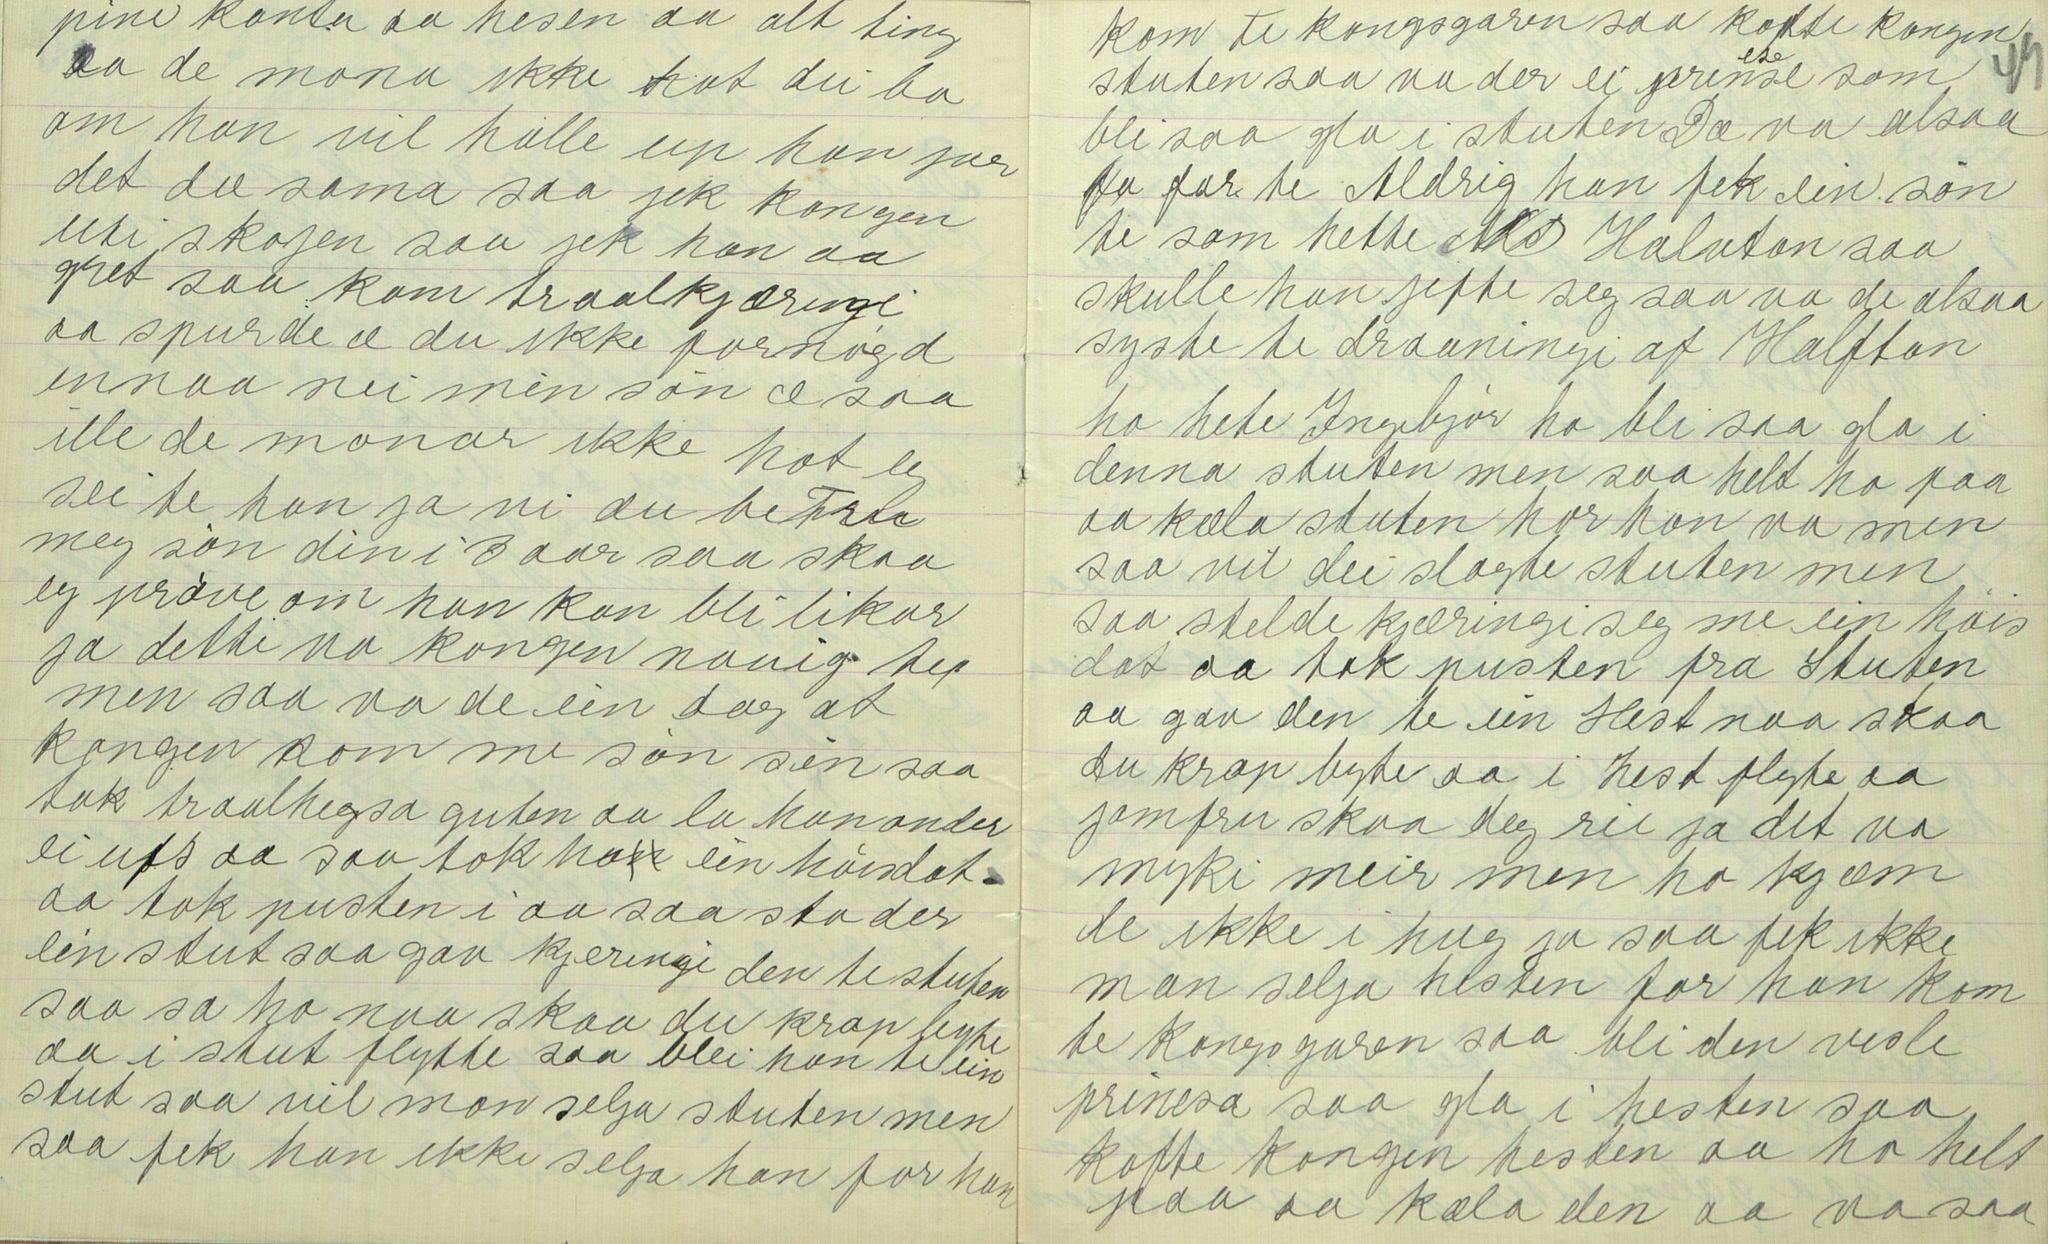 pine konta aa hesen aa alt ting
aa de mona ikke hot dei ba
om han vil halle up han gjer
det dæ sama saa jek kongen
uti skogen saa jek han aa
gret saa kom traalkjæringi
aa spurde æ du ikke fornögd
ennaa nei min sön æ saa
ille de monar ikke hot eg
sei te han ja vi du betrla
meg sön din i 3 aar saa skaa
eg pröve om han kan bli likar
ja dette va kongen nauig tep
men saa va de ein dag at
kongen kom me sön sin saa
tok traalhegsa guten aa la han onder
ei ufs aa saa tok ho ein höisdot
aa tok pusten i aa saa sto der
ein stut saa gav kjæringi den te stuten
saa sa ho naa skaa du krap bytte
aa i stut flytte saa blei han te ein
stut saa vil mon selja stuten men
saa fek han ikke selja han for han
kom te kongsgaren saa kofte kongen
49
stuten saa va der ei prinsese som
bli saa gla i stuten Dæ va alsaa
far te Aldrig han fek ein sön
te som hette Halvton saa
skulle han jefte seg saa va de alsaa
syste te draaningi af Halfton
ho hete Ingebjör ho bli saa gla i
denna stuten men saa helt ho paa
aa kæla stuten hor han va men
saa vil dei slagte stuten men
saa stelde kjæringi seg me ein höis
dot aa tok pusten fra Stuten
aa gav den te ein Hest naa skaa
du krap byte aa i hest flyte aa
jomfru skaa deg rie ja det va
myki meir men ho kjæm
de ikke i hug ja saa fek ikke
man selja hesten for han kom
te kongsgaren saa bli den vesle
prinesa saa gla i hesten saa
kofte kongen hesten aa ho helt
paa aa kæla den aa va saa